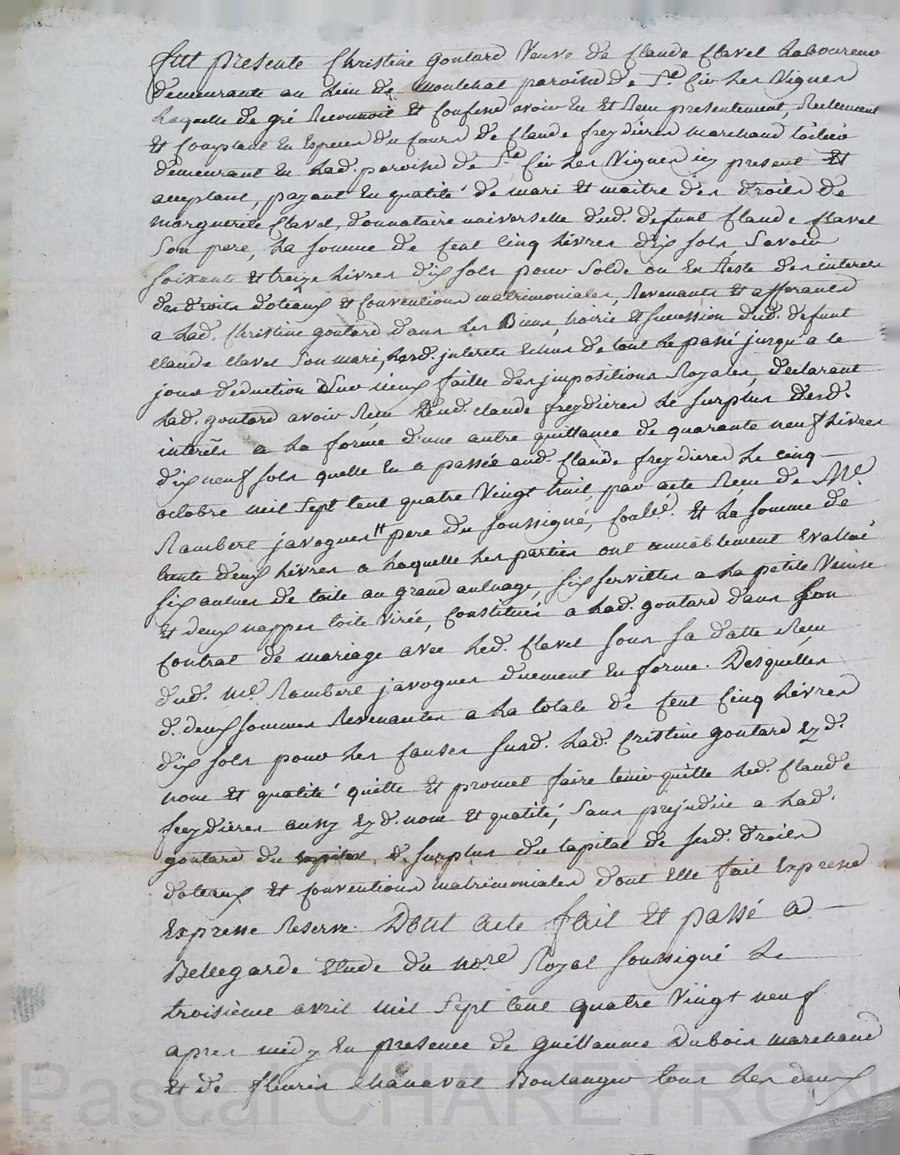 fut presente Christine goutard Veuve de Claude Clavel Laboureur
demeurante au lieu de Montchal paroisse de St. Cir Les Vignes
Laquelle de gré Reconnoit et Confesse avoir Eu et Reçu presentement, Reelement
et Comptant En Especes du Cours de Claude freydieres marchand toilier
demeurant En Lad. paroisse de St. Cir Les Vignes icy present et
acceptant, payant En qualité de mari et maitre des droits de
marguerite Clavel, donnataire universelle dud. defunt Claude Clavel
Son pere, La somme de Cent Cinq Livres dix sols Savoir
soixante et treize Livres dix sols pour Solde ou En Reste des interets
des droits dotaux et Conventions matrimoniales, Revenants et afferants
a Lad. Christine goutard dans Les Biens, hoirie et succession dud. defunt
Claude Clavel Son mari, Lesd. interets Echus de tout Le passé jusqu'a ce
jour deduction faitte des impositions Royales, declarant
Lad. goutard avoir Reçu dud. Claude freydieres Le surplus desd.
interêts a La forme d'une autre quittance de quarante neuf Livres
dix neuf sols quelle En a passée aud. Claude freydieres Le cinq
octobre mil Sept Cent quatre Vingt huit, par acte Reçu de Me.
Rambert javogues pere du soussigné, Conllé. Et La somme de
trente deux Livres a Laquelle Les parties ont amiablement Evalué
six aulnes de toile au grand aulnage, six serviettes a La petite Venise
et deux nappes toile Virée, Constitués a Lad. goutard dans son
Contrat de mariage avec Led. Clavel sous sa datte Reçu
dud. Me. Rambert javogues duement En forme. Desquelles
d. deux sommes Revenantes a La totale de Cent Cinq Livres
dix sols pour Les Causes susd. Lad. Cristine goutard Ezd.
nom et qualité quitte et promet faire tenir quitte Led. Claude
freydieres aussy Ezd. nom et qualité, Sans prejudice a Lad.
goutard du surplus du Capital de sesd. droits
dotaux et Conventions matrimoniales dont Elle fait Expresse
Expresse Reserve. Dont acte fait et passé a
Bellegarde Etude du nore. Royal soussigné Le
troisième avril mil Sept Cent quatre Vingt neuf
apres midy En presence de Guillaume Dubois marchand
et de fleuris Chavaval Boulanger tous Les deux
Pascal CHAREYRON